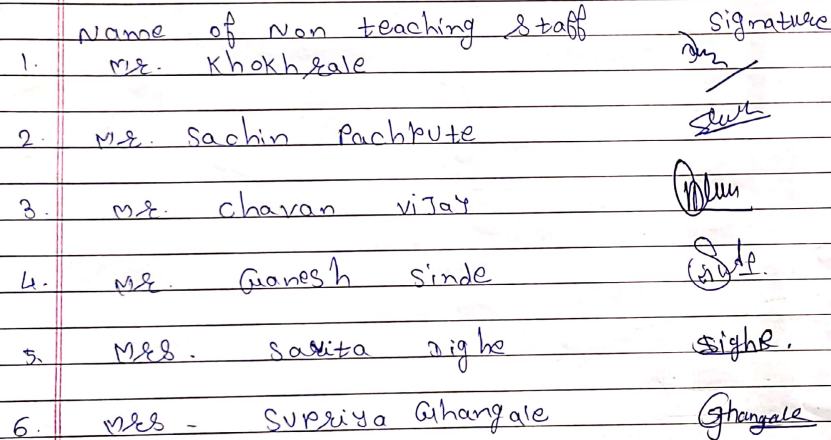 Name of Non teaching Staff Signature
1. Mr. Khokhrale
2. Mr. Sachin Pachpute
3. Mr. Chavan viJay
4. Mr. Ganesh Sinde
5. Mrs. Sarita Dighe Sighe.
6. Mrs - Supriya Ghangale Ghangale